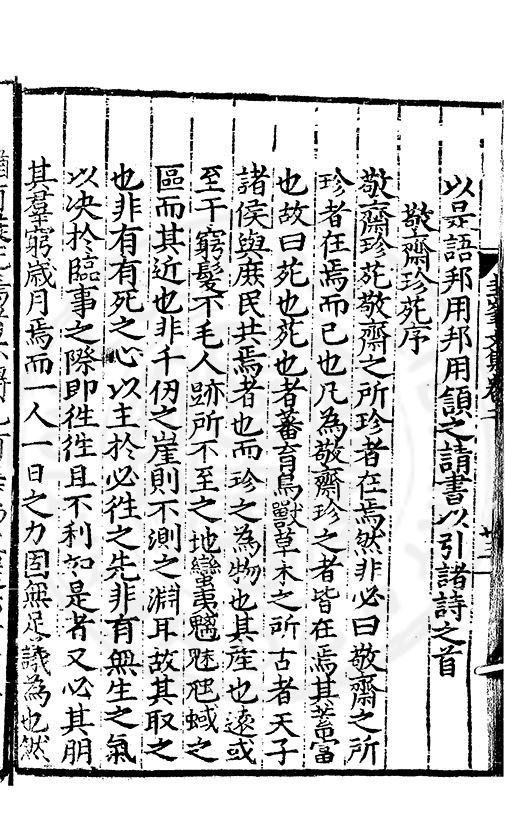 以是語邦用邦用頷之請書以引諸詩之首
敬齋珍苑序
敬齋珍苑敬齋之所珍者在焉然非必曰敬齋之所
珍者在焉而已也凡為敬齋珍之者皆在焉其蓄富
也故曰苑也苑也者蕃育鳥獸草木之所古者天子
諸侯與庶民共焉者也而珍之為物也其產也遠或
至干窮髮不毛人跡所不至之地蠻夷魑魅虺蜮之
區而其近也非千仞之崖則不測之淵耳故其取之
也非有有死之心以主於必徃之先非有無生之氣
以决於臨事之際即徃徃且不利如是者又必其朋
其羣窮歲月焉而一人一日之力固無足議為也然